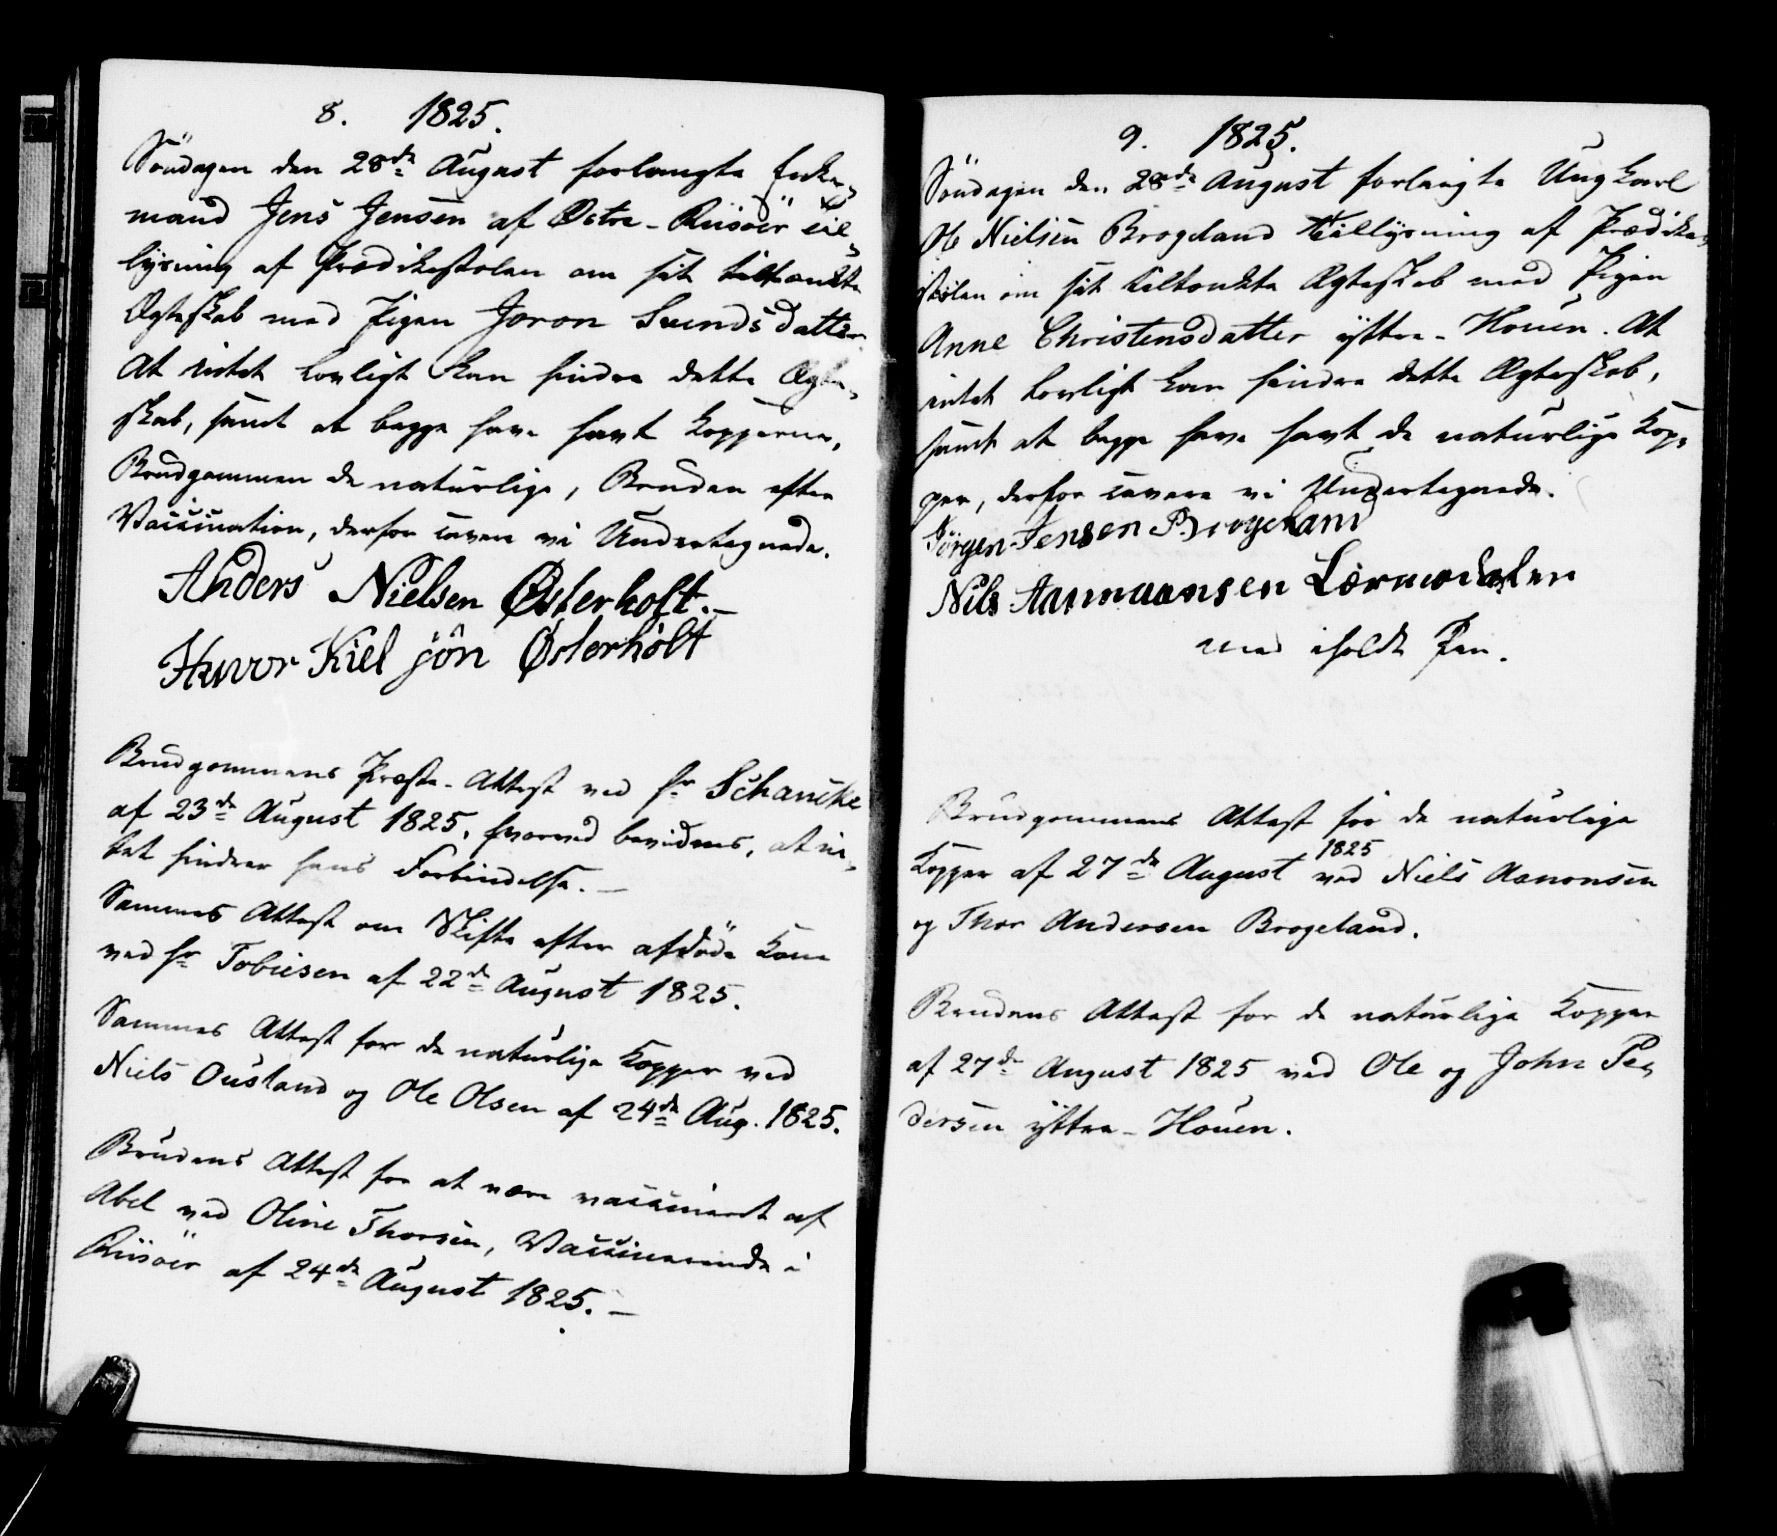 8. 1825.
Söndagen den 28de August forlangte Enke-
mand Jens Jensen af Østre-Riisöer til-
lysning af Prædikestolen om sit tiltænkte
Ægteskab med Pigen Joron Svendsdatter.
At intet lovligt kan hindre dette Ægte-
skab, samt at begge have havt Kopperne,
Brudgommen de naturlige, Bruden efter
Vaccination, derfor cavere vi Undertegnede.
Anders Nielsen Østerholt.
Huvor Kiel jön Østerholt
Brudgommens Præste-Attest ved Hr Schancke
af 23de August 1825, hvorved bevidnes, at in-
tet hindrer hans Forbindelse.
Sammes Attest om Skifte efter afdöde Kone
ved Hr Tobiesen af 22de August 1825.
Sammes Attest for de naturlige Kopper ved
Niels Ousland og Ole Olsen af 24de Aug. 1825.
Brudens Attest for at være vaccineret af
Abel ved Oline Thorsen, Vaccinerende i
Riisöer af 24de August 1825.
9. 1825.
Söndagen den 28de August forlangte Ungkarl
Ole Nielsen Brogeland Tillysning af Prædike-
stolen om sit tiltænkte Ægteskab med Pigen
Anne Christensdatter yttre-Houen. At
intet lovligt kan hindre dette Ægteskab,
samt at begge have havt de naturlige Kop-
per, derfor cavere vi Undertegnede.
Jörgen Jensen Brogeland
Nils Aanmaansen
med iholdt Pen.
Brudgommens Attest for de naturlige
Kopper af 27de August 1825 ved Niels Aanonsen
og Thor Andersen Brogeland.
Brudens Attest for de naturlige Kopper
af 27de August 1825 ved Ole og John Pe-
dersen yttre-Houen.